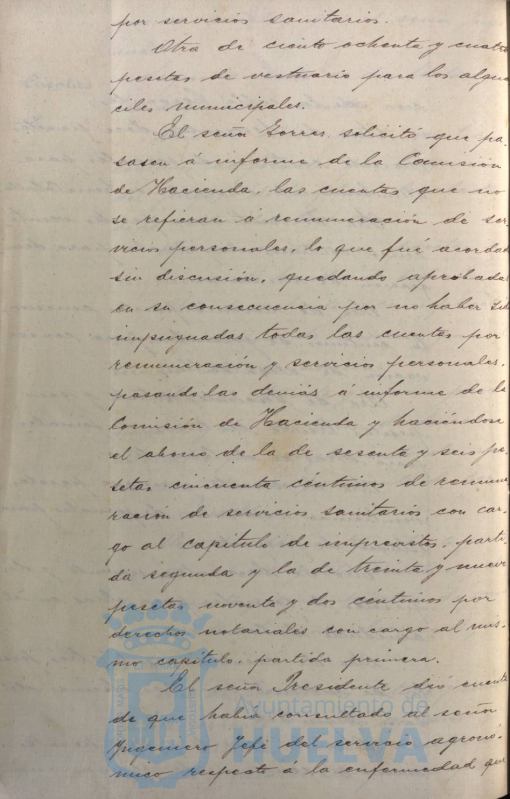 por servicios sanitarios.
Otra de ciento ochenta y cuatro
pesetas de vestuario para los algua
ciles municipales.
El señor Torres solicitó que pa-
sasen á informe de la Comisión
de Hacienda, las cuentas que no
se refieran á remuneración de ser
vicios personales, lo que fué acordado
sin discusión, quedando aprobadas
en su consecuencia por no haber sido
impugnadas todas las cuentas por
remuneración y servicios personales,
pasando las demás á informe de la
Comisión de Hacienda y haciéndose
el abono de la de sesenta y seis pe
setas cincuenta céntimos de remune
ración de servicios sanitarios con car-
go al capitulo de imprevistos, parti
da segunda y la de treinta y nueve
pesetas noventa y dos céntimos por
derechos notariales con cargo al mis-
mo capítulo, partida primera.
El señor Presidente dió cuenta
de que habia consultado al señor
Ingeniero Jefe del servicio agronó-
mico respecto á la enfermedad que
Ayuntamiento de
HUELVA